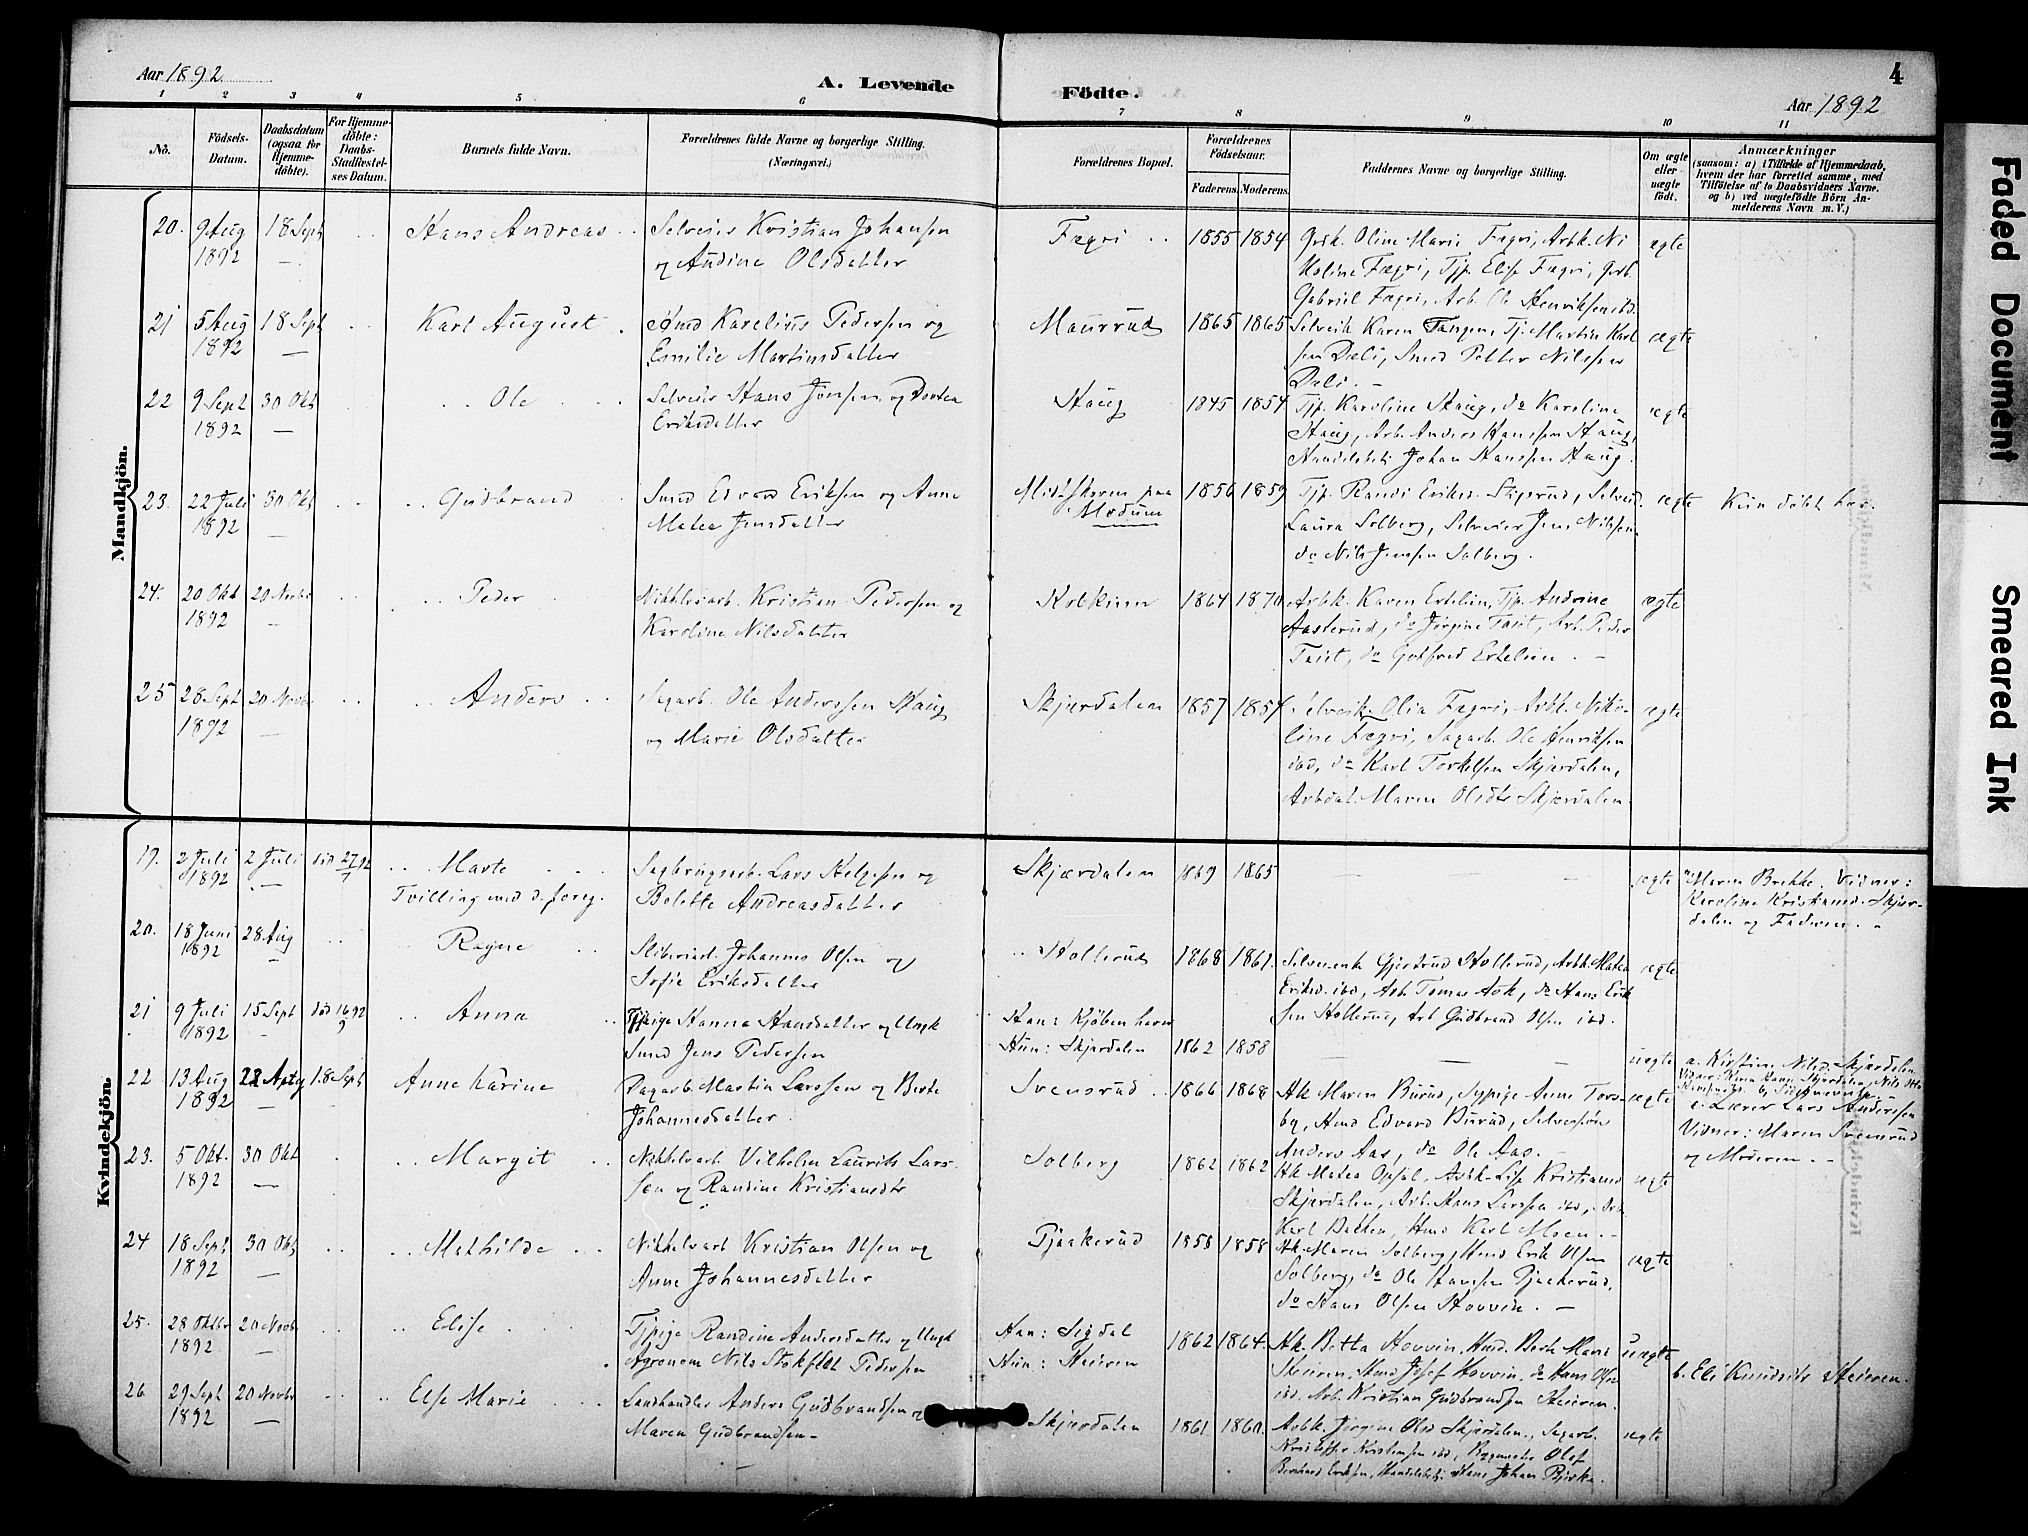 Aar 1892
A. Levende Födte.
4
Aar 1892
1 2 3 4 5 6 7 8 9 10 11
No.
Födsels-Datum.
Daabsdatum (ogsaa for Hjemme-döbte).
For Hjemme-döbte: Daabs-Stadfæstel-ses Datum.
Barnets fulde Navn.
Forældrenes fulde Navne og borgerlige Stilling. (Næringsvei.)
Forældrenes Bopæl.
Forældrenes Födselsaar.
Faderens. Moderens.
Faddernes Navne og borgerlige Stilling.
Om ægte eller uægte født.
Anmærkninger
(saasom: a) i Tilfælde af Hjemmedaab,
hvem der har forrettet samme, med
Tilföielse af to Daabsvidners Navne.
og b) ved uægtefödte Börn An-
melderens Navn m. V.)
Mandkjön.
20. 9 Aug 1892 18 Sept Hans Andreas
Selveier Kristian Johansen
og Andine Olsdatter
Fægri 1855 1854
Grdk. Oline Marie Fægri, Arbk. Ni
koline Fægri, Tjp. Elise Fægri, Grdb.
Gabriel Fægri, Arb. Ole Henriksen ibd.
ægte
21 5 Aug 1892 18 Sept Karl August
Smed Karelius Pedersen og
Emilie Martinsdatter
Maurrud 1865 1865
Selveik. Karen Tangen, Tj. Martin Karl
sen Dæli, Smed Petter Nilssen
Dæli.
ægte
22 9 Sept 1892 30 Okt Ole
Selveier Hans Jonsen og Dortea
Eriksdatter
Haug 1845 1854
Tjp. Karoline Haug, do Karoline
Haug, Arb. Anders Hanssen Haug,
Handelsbetj. Johan Hanssen Haug.
ægte
23. 22 Juli 1892 30 Okt Gudbrand
Smed Edvard Eriksen og Anne
Matea Jensdatter
Midtskoven paa
Modum
1856 1859
Tjp. Randi Eriksd. Skjerud, Selveid.
Laura Solberg, Selveier Jens Nilssen
do Nils Jenssen Solberg.
ægte
Kun døbt her.
24. 20 Okt 1892 20 Novbr Peder
Nikkelvarb. Kristian Pedersen og
Karoline Nilsdatter
1864 1870
Arbk. Karen Ertelien, Tjp. Andrine
Aasterud, do Jørgine Tait, Arb. Peder
Tait, do Gotfred Ertelien.
ægte
25 28 Sept 1892 20 Novbr Anders
Sagarb. Ole Anderssen Haug
og Marie Olsdatter
Skjærdalen 1857 1857
Selveik. Olia Fægri, Arbk. Niko-
line Fægri, Sagarb. Ole Henriksen
ibd, do Karl Torkelsen Skjærdalen,
Arbdat. Maren Olsdtr Skjærdalen.
ægte
Kvindekjön.
19. 2 Juli 1892 2 Juli død 27/7 92 Marte
Tvilling med d. foreg.
Sagbrugsarb. Lars Helgesen og
Bolette Andreasdatter
Skjærdalen 1869 1865
ægte
Maren Brekke. Vidner:
Karoline Kristiansd. Skjær-
dalen og Faderen.
20. 18 Juni 1892 28 Aug Ragne
Sliberiarb. Johannes Olsen og
Sofie Eriksdatter
Hollerud 1868 1861
Selveierenk. Gjertrud Hollerud, Arbk. Matea
Eriksd. ibd, Arb. Tomas Ask, do Hans Erik
sen Hollerud, Arb. Gudbrand Olsen ibd.
ægte
21 9 Juli 1892 15 Sept død 16/9 92 Anna
Tjpige Hanna Hansdatter og Ungk
Smed Jens Pedersen
Han: Kjøbenhavn
Hun: Skjærdalen
1862 1858
uægte
a. Kirstine Nilsd. Skjærdalen
22 13 Aug 1892 18 Sept Anne Karine
Dagarb. Martin Larssen og Berte
Johannesdatter.
Svensrud 1866 1868
Hk Maren Burud, Sypige Anne Tors-
by, Hmd Edvard Burud, Selveiersøn
Anders Aas, do Ole Aas.
ægte
a. Lærer Lars Anderssen
Vidner: Maren Svensrud
og Moderen.
23. 5 Okt. 1892 30 Okt Margit
Nikkelvarb. Vilhelm Laurits Lars-
sen og Randine Kristiansdtr
Solberg 1862 1862
Hk Matea Opsal, Arbk. Lise Kristiansd
Skjærdalen, Arb. Hans Larssen ibd, Arb.
Karl Bakken, Hmd Karl Moen.
ægte
24 18 Sept 1892 30 Okt Mathilde
Nikkelvarb Kristian Olsen og
Anne Johannesdatter
Tjaakerud 1858 1858
Hk. Maren Solberg, Hmd Erik Olsen
Solberg, do Ole Hanssen Tjaakerud,
do Hans Olsen Hovvin.
ægte
25. 28 Oktbr 1892 20 Novbr Elise
Tjpige Randine Andersdatter og Ungk
Agronom Nils Stokflet Pedersen
Han: Sigdal
Hun: Heieren
1862 1864.
Hk. Betta Hovvin, Hmd. Berte Marie
Heieren, Hmd Josef Hovvin, do Hans Olsen
ibd. Arb. Kristian Gudbrandsen Heieren.
uægte
b. Eli Knudsdtr Heieren.
26 29 Sept 1892 20 Novbr Else Marie
Landhandler Anders Gudbrandsen og
Maren Gudbrandsen
Skjærdalen 1861 1860.
Arbk. Jørgine Olsd Skjærdalen, Sagarb.
Kristoffer Kristensen ibd, Olof
Bernhard Eriksen, Handelsbetj. Hans Johan Bjerke.
ægte
Faded Document
Smeared Ink